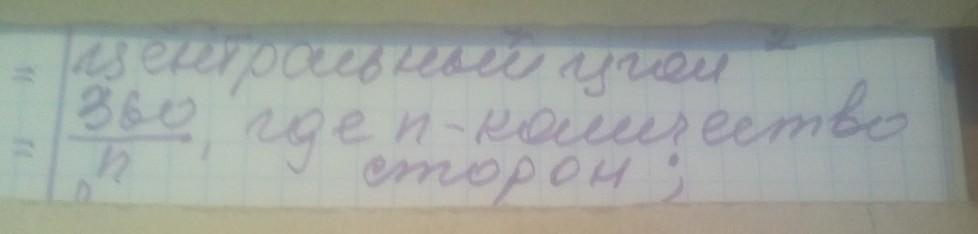 = центральный угол =
= 360/n, где n - количество
сторон;